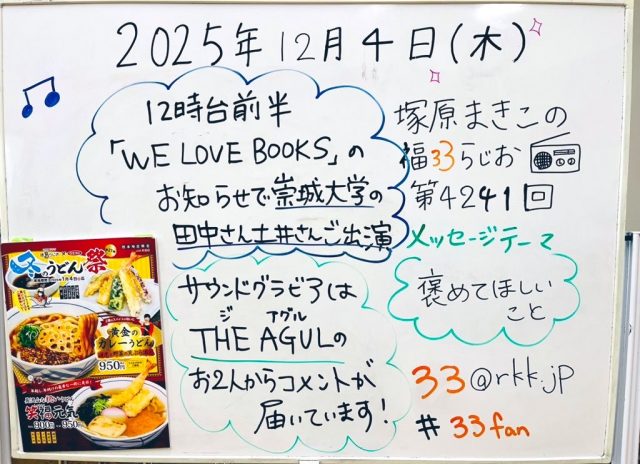 2025年12月4日(木)
12時台前半
「WE LOVE BOOKS」の
お知らせで崇城大学の
田中さん土井さんご出演
塚原まきこの
福33らじお
第4241回
メッセージテーマ
褒めてほしい
こと
サウンドグラビアは
ジ アグル
THE AGULの
お2人からコメントが
届いています!
33@rkk.jp
#33fan
冬のうどん祭
黄金の
カレーうどん
950円
笑福元気
900円
950